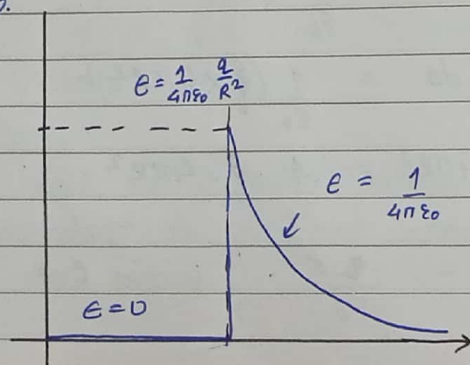 E = 1/4πε₀ q/R²
E = 1/4πε₀
E = 0